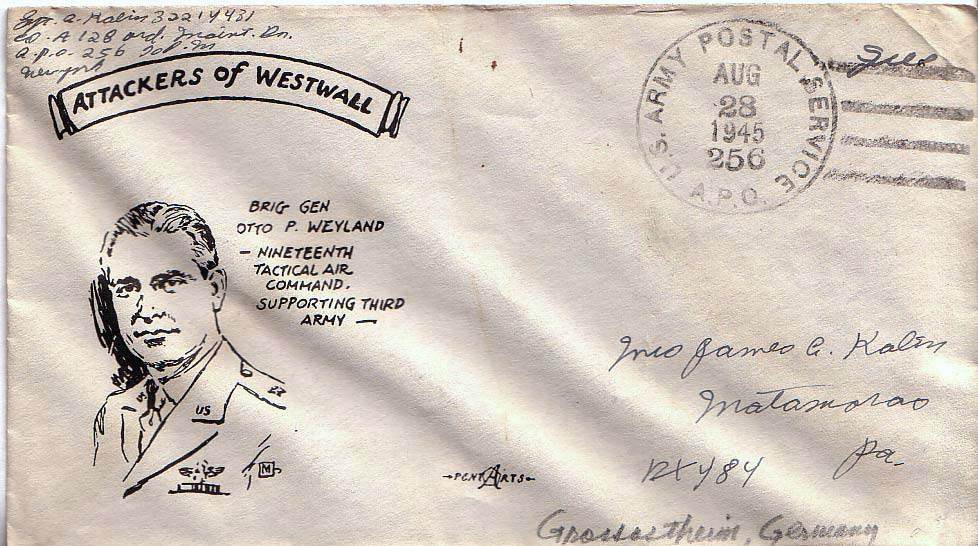 Cpr. A. Kalin 32214431
Co. A 128 Ord. Maint. Bn.
A.P.O. 256 P.M.
New York
Free
U.S. ARMY POSTAL SERVICE
AUG
28
1945
256
A.P.O.
ATTACKERS OF WESTWALL
BRIG GEN
OTTO P. WEYLAND
— NINETEENTH
TACTICAL AIR
COMMAND.
SUPPORTING THIRD
ARMY —
US
M
PENT ARTS
Mrs James A. Kalin
Matamoras
BX 484 Pa.
Grossostheim, Germany